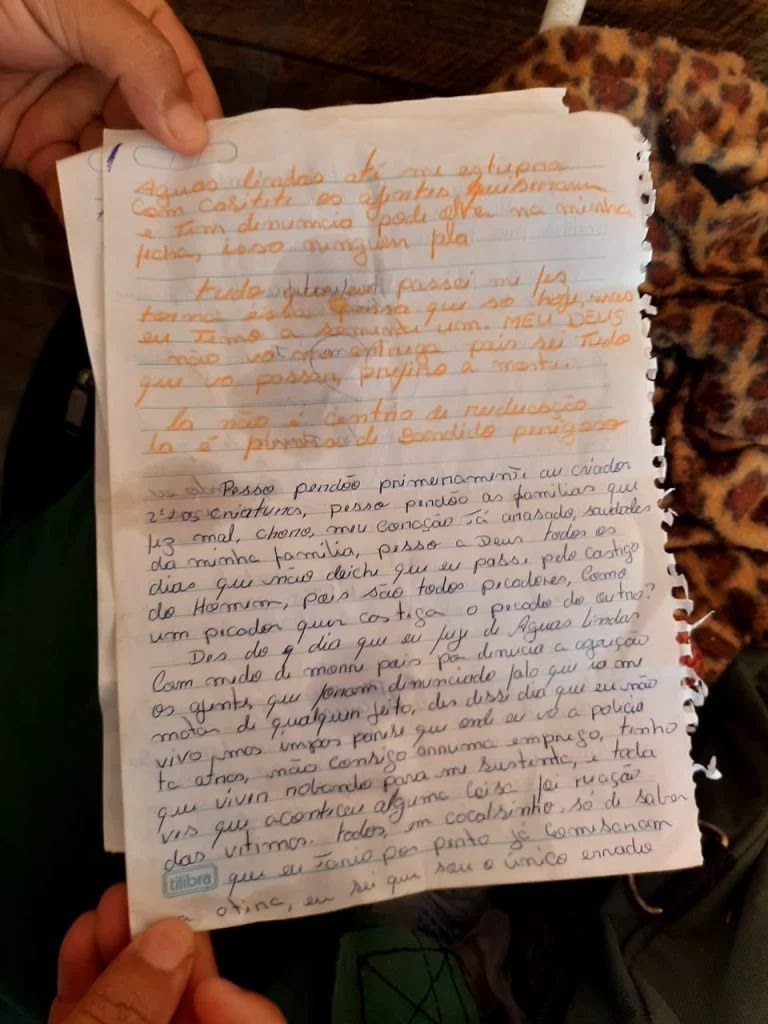 Aguas lindas até me estupra
com casitete os agentes quiseram
e Tem denuncia pode ver na minha
ficha, isso ninguem
tudo passei me fez
torna essa que so hoje, mas
eu Temo a somente um. MEU DEUS
não vo entrega pois sei Tudo
que vo passar, prefiro a morte.
la não é centro de reeducação
la é de Bandido perigoso
Pesso perdão primeiramente au criador
2º os criaturas, pesso perdão as familias que
fiz mal, choro, meu coração tá arrasado, saudades
da minha familia, pesso a Deus todos os
dias que não deiche que eu passe pelo castigo
do Homem, pois são todos picadores, Como
um picador quer castiga o pecado do outro?
Des do dia que eu fugi de Aguas lindas
Com medo de morre pois por dinucia a agreção
os agentes que foram dinunciado falo que ia me
matar de qualquer jeito, des dissi dia que eu não
vivo, mas impas parese que onde eu vo a policia
ta atras, não consigo arruma emprego, tenho
que viver robando para me sustenta, e toda
ves que aconticeu alguma coisa foi reação
das vitimas. todos, em cocalsinho, só de saber
que eu Tario por perto já comesaram
tilibra
a atira, eu sei que sou o único errado